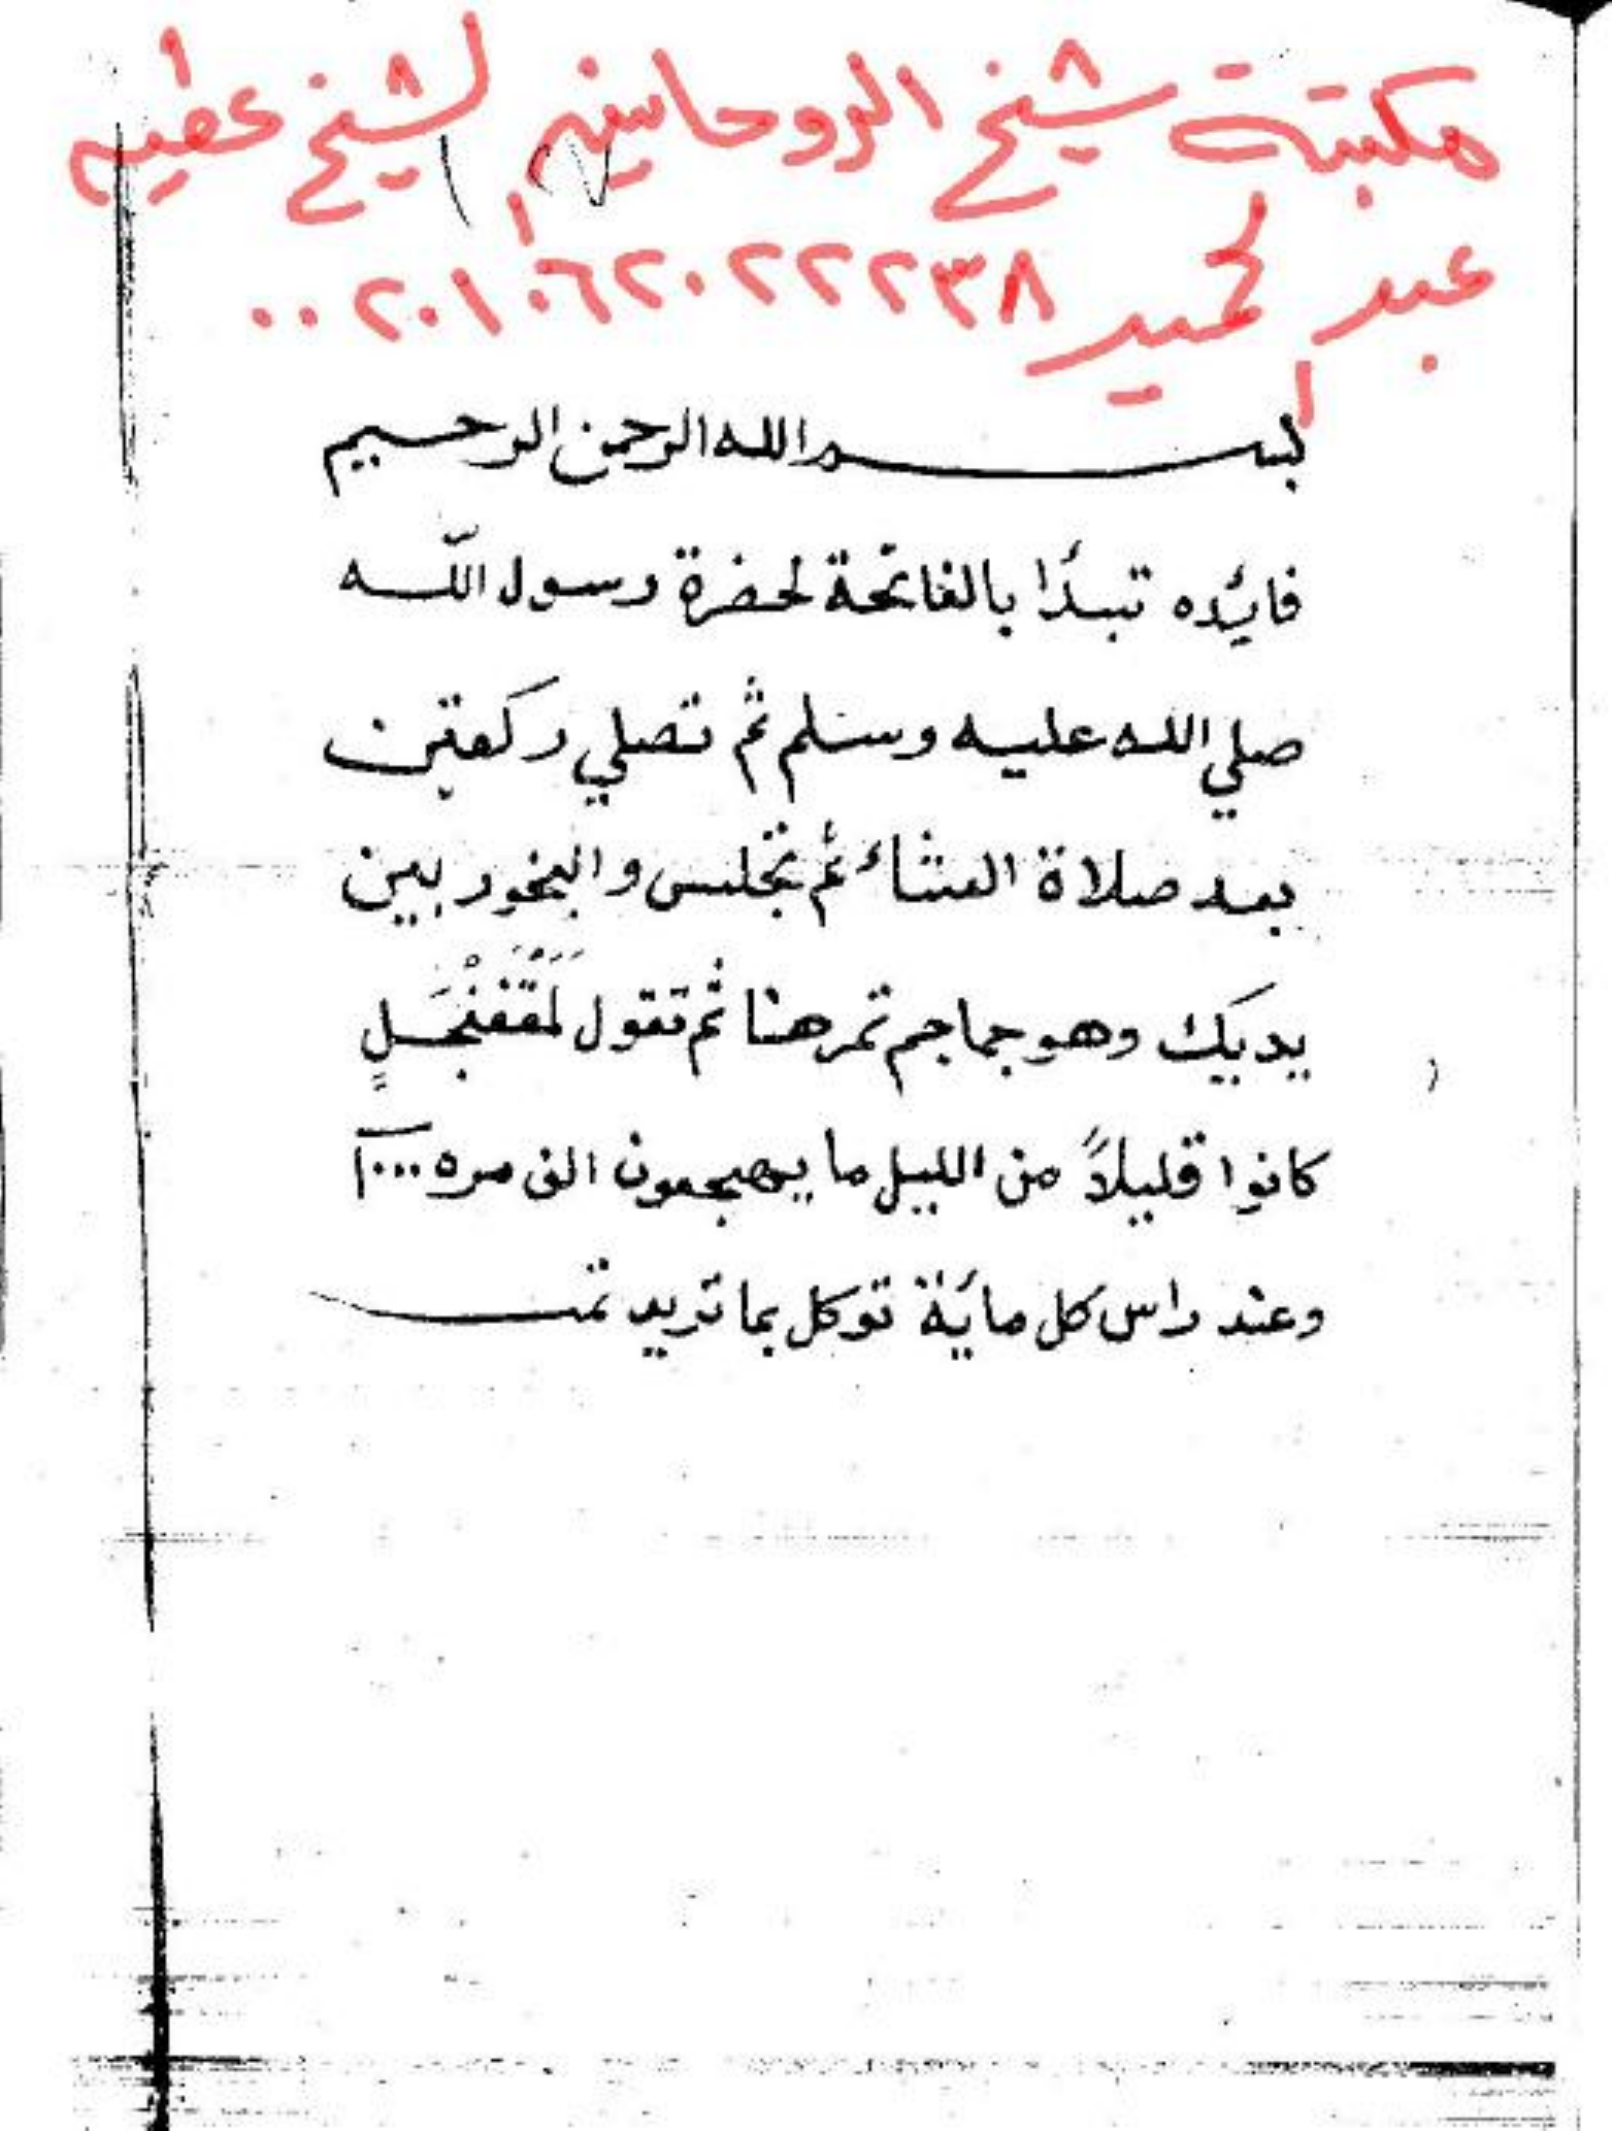 مكتبة شيخ الروحاين الشيخ عطيه
عبد الحميد ٠٠٢٠١٠٦٢٠٢٢٢٣٨
بسم الله الرحمن الرحيم
فائده تبدأ بالفاتحة لحضرة رسول اللّه
صلي الله عليه وسلم ثم تصلي ركعتين
بعد صلاة العشاء ثم تجلس والبخور بين
يديك وهو جماجم تمرهنا ثم تقول لَمَقَفَنْجَلٍ
كانوا قليلاً من الليل ما يهجعون الف مره ١٠٠٠
وعند راس كل مائة توكل بما تريد تمت